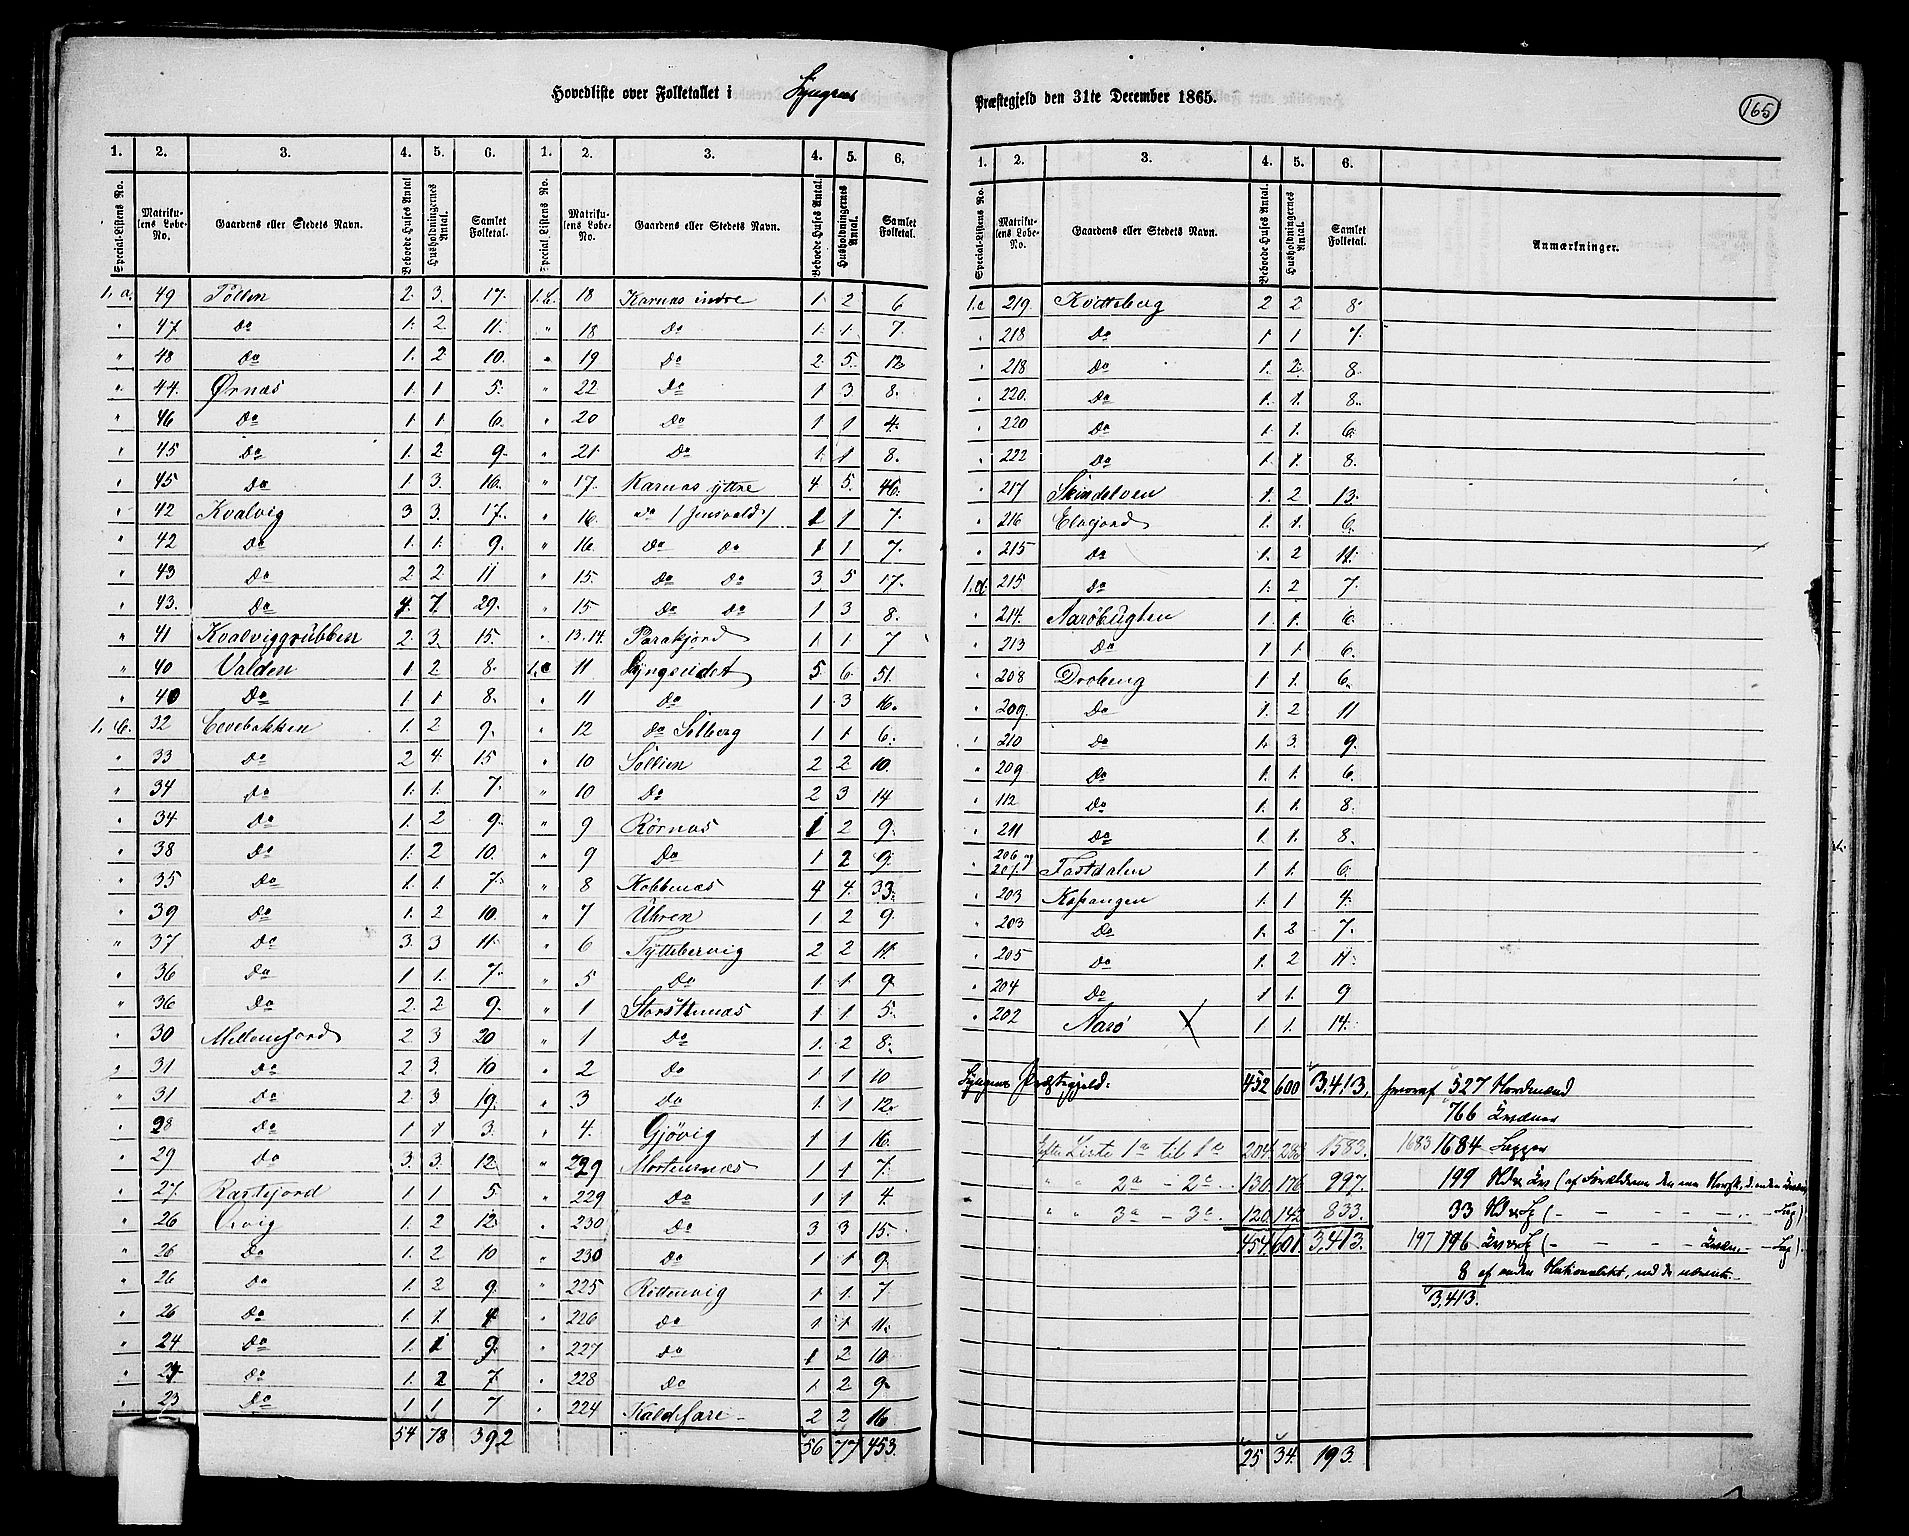 Hovedliste over Folketallet i Lyngens
Præstegjeld den 31te December 1865.
165
1. 2. 3. 4. 5. 6. 1. 2. 3. 4. 5. 6.
Special-Listens No. Matrikulens Lobe-No. Gaardens eller Stedets Navn. Beboede Huses Antal Husholdningernes Antal. Samlet Folketal. Special-Listens No. Matrikulens Lobe-No. Gaardens eller Stedets Navn. Beboede Huses Antal. Husholdningernes Antal. Samlet Folketal.
1. a. 49 Pollen 2. 3. 17.
" 47 Do 1. 2 11.
" 48 Do 1. 2 10.
" 44. Ørnæs 1. 1 5.
" 46 Do 1 1 6.
" 45 Do 1. 2 9.
" 45 Do 1. 3. 16.
" 42 Kvalvig 3 3. 17.
" 42 Do 1. 1. 9.
" 43 Do 2 2 11
" 43. Do 4. 7. 29.
" 41 Kvalviggrubben 2. 3. 15.
" 40 Valden 1 2 8.
" 40 Do 1 1 8.
1. b. 32 1. 2 9.
" 33 Do 2 4. 15
" 34 Do 1. 1. 7.
" 34 Do 1. 2 9.
" 38 Do 1. 2 10.
" 35 Do 1. 1. 7.
" 39 Do 1. 2 10.
" 37 Do 3. 3 11.
" 36 Do 1 1. 7.
" 36 Do 2 2 9.
" 30 2 3 20
" 31 Do 2 3. 10
" 31 Do 2. 3 19.
" 28 Do 1 1 3.
" 29 Do 3. 3. 12
" 27. Rastefjord 1 1 5
" 26 1. 2 12.
" 26 Do 1. 2 10
" 26 Do 1. 2 9.
" 26 Do 1. 1. 4
" 24 Do 1. 1 9.
" 24 Do 1. 2 7
" 23 Do 1 1 7
54 78 392
1. b. 18 Karnæs indre 1. 2 6
" 18 Do 1. 1. 7.
" 19 Do 2. 5. 12
" 22 Do 1 3. 8.
" 20 Do 1 1 4.
" 21. Do 1. 1 8.
" 17. Karnæs yttre 4 5. 46.
" 16. Do /Jensvold/ 1 1 7.
" 16. Do Do 1 1 7.
" 15. Do Do 3 5 17.
" 15 Do Do 1 3 8.
" 13.14. Parakjord 1. 1 7
1. c 11 Lyngseidet 5 6. 51.
" 11 Do 1. 3 16.
" 12 Do Solberg 1 1 6.
" 10 Sollien 2 2 10.
" 10 Do 2 3 14
" 9 Rørnæs 1 2 9.
" 9 Do 1 2 9.
" 8 Kobbenæs 4 4. 33.
" 7 Uhren 1 2 9.
" 6 Tyttebærvig 2 2 11.
" 5 Do 1. 1 9.
" 1 1 1 5.
" 1 Do 1. 2 8.
" 2 Do 1 1 10
" 3 Do 1. 1 12.
" 4. Gjøvig 1 1 16.
" 229 Mortensnæs 1 1 7.
" 229 Do 1 1 4.
" 230 Do 3 3 15.
" 230 Do 1 1 9.
" 225 Rottenvig 1 1. 7
" 226 Do 1 1 11.
" 227 Do 1 2 10
" 228 Do 1 2 9.
" 224 Kaldefare - 2 2 16
56 77 453.
1. 2. 3. 4. 5. 6.
Special-Listens No. Matrikulens Lobe-No. Gaardens eller Stedets Navn. Beboede Huses Antal. Husholdningernes Antal. Samlet Folketal. Anmærkninger.
1.c 219. Kvitteberg 2 2 8.
" 218 Do 1 1 7.
" 218 Do 1. 2. 8
" 220. Do 1. 1. 8.
" 220 Do 1 1. 6.
" 222 Do 1. 1. 8.
" 217 Skindelven 1. 2 13.
" 216 Elvejord 1. 1. 6.
" 215 Do 1. 2 11.
1.d. 215 Do 1. 2 7.
" 214. Aarøbugten 1 1. 6.
" 213 Do 1 1. 6.
" 208 Droberg 1 1. 6.
" 209. Do 1. 2 11
" 210 Do 1. 3. 9.
" 209 Do 1. 1. 6
" 112 Do 1. 1. 8.
" 211 Do 1. 1. 8.
" 206 og 207. Fastdalen 1 1. 6.
" 203 Kopangen 1. 1 4.
" 203 Do 1. 2 7.
" 205 Do 1. 2 11.
" 204 Do 1 1. 9
" 202 Aarø X 1 1. 14.
Lyngens Præstegjeld: 452 600 3,413. hvoraf 527 Nordmænd
766 Kvæner
Efter Liste 1a til 1d 204 283 1583. 1683 1684 Lapper
" " 2a - 2c 130. 176 997. 199 N & Kv (af Forældrene den ene Norsk, d. anden Kvæn)
" " 3a - 3c 120. 142 833. 33 N & L (- - - - -, - Lap)
454 601 3,413. 197 196 Kv & L (- - - - Kvæn, - Lap)
8 af anden Nationalitet, end de nævnte
3,413.
25 34. 193.